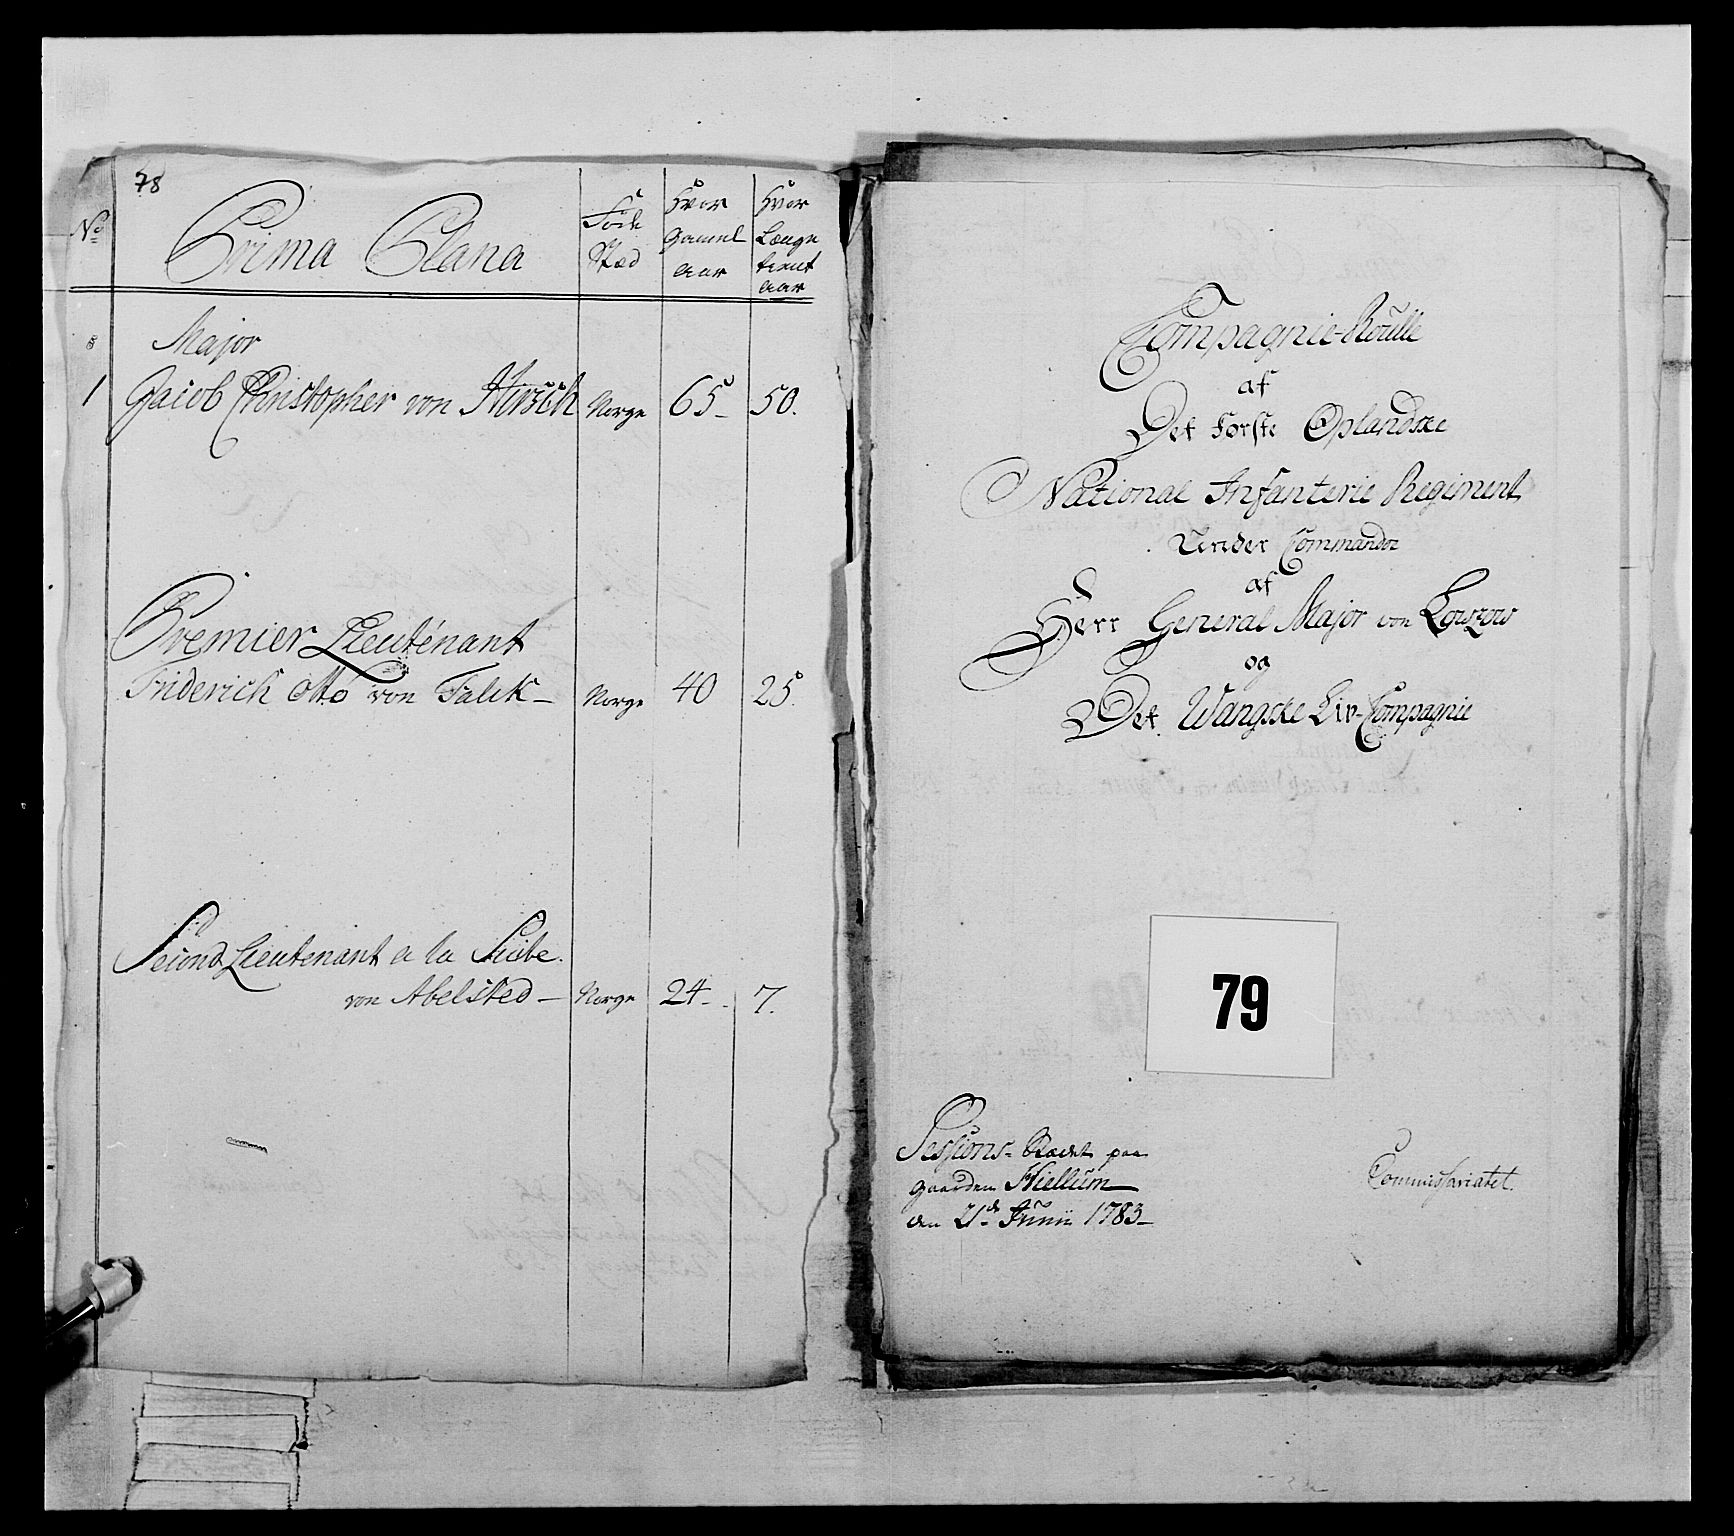 78
No
Prima Plana
Føde Stæd
Hvor Gamel aar
Hvor Længe tient aar
Major
1 Jacob Christopher von Hirsch Norge 65 - 50.
Premier Lieutenant
Friderich Otto von Falck - Norge 40 25.
Second Lieutenant a la Suite.
von Abelsted - Norge 24 - 7.
Compagnie-Roulle
af
Det Første Oplandske
National Infanterie Regiment
Under Commando
af
Herr General Major von Lowzow
og
Det Wangske Liv-Compagnie
79
Sessions-Stædet paa
gaarden Hiellum
den 21de Junii 1783 -
Commissariatet.